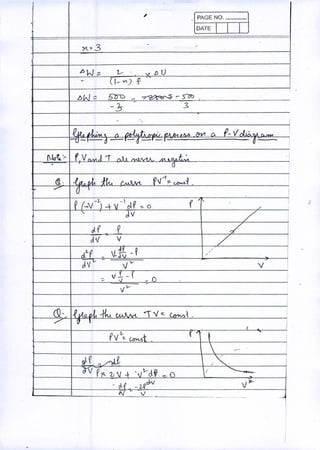 PAGE NO.
DATE
x=3
ΔW = 2/((1-n) f) × ΔU
ΔW = 500/-3 = -500/3
Graphing a polytropic process on a P-V diagram
Note:- P, V and T are never negative
Q. Graph the curve PV⁻¹ = const.
P(-V⁻²) + V⁻¹ dP/dV = 0
dP/dV = P/V
d²P/dV² = (V dP/dV - P)/V²
= (V P/V - P)/V² = 0
P
V
Q. Graph the curve TV = const.
PV² = const.
P × 2V + V² dP/dV = 0
dP/dV = -2P/V
P
V